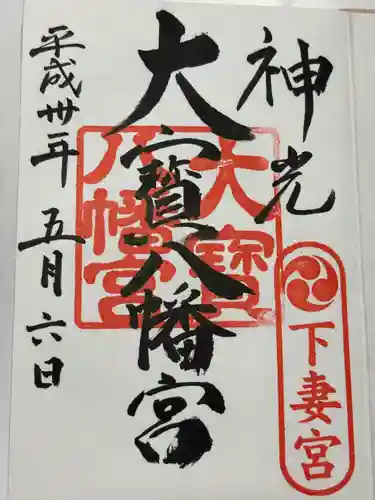 神光
下妻宮
大寳八幡宮
大寳八幡宮
平成卅年五月六日